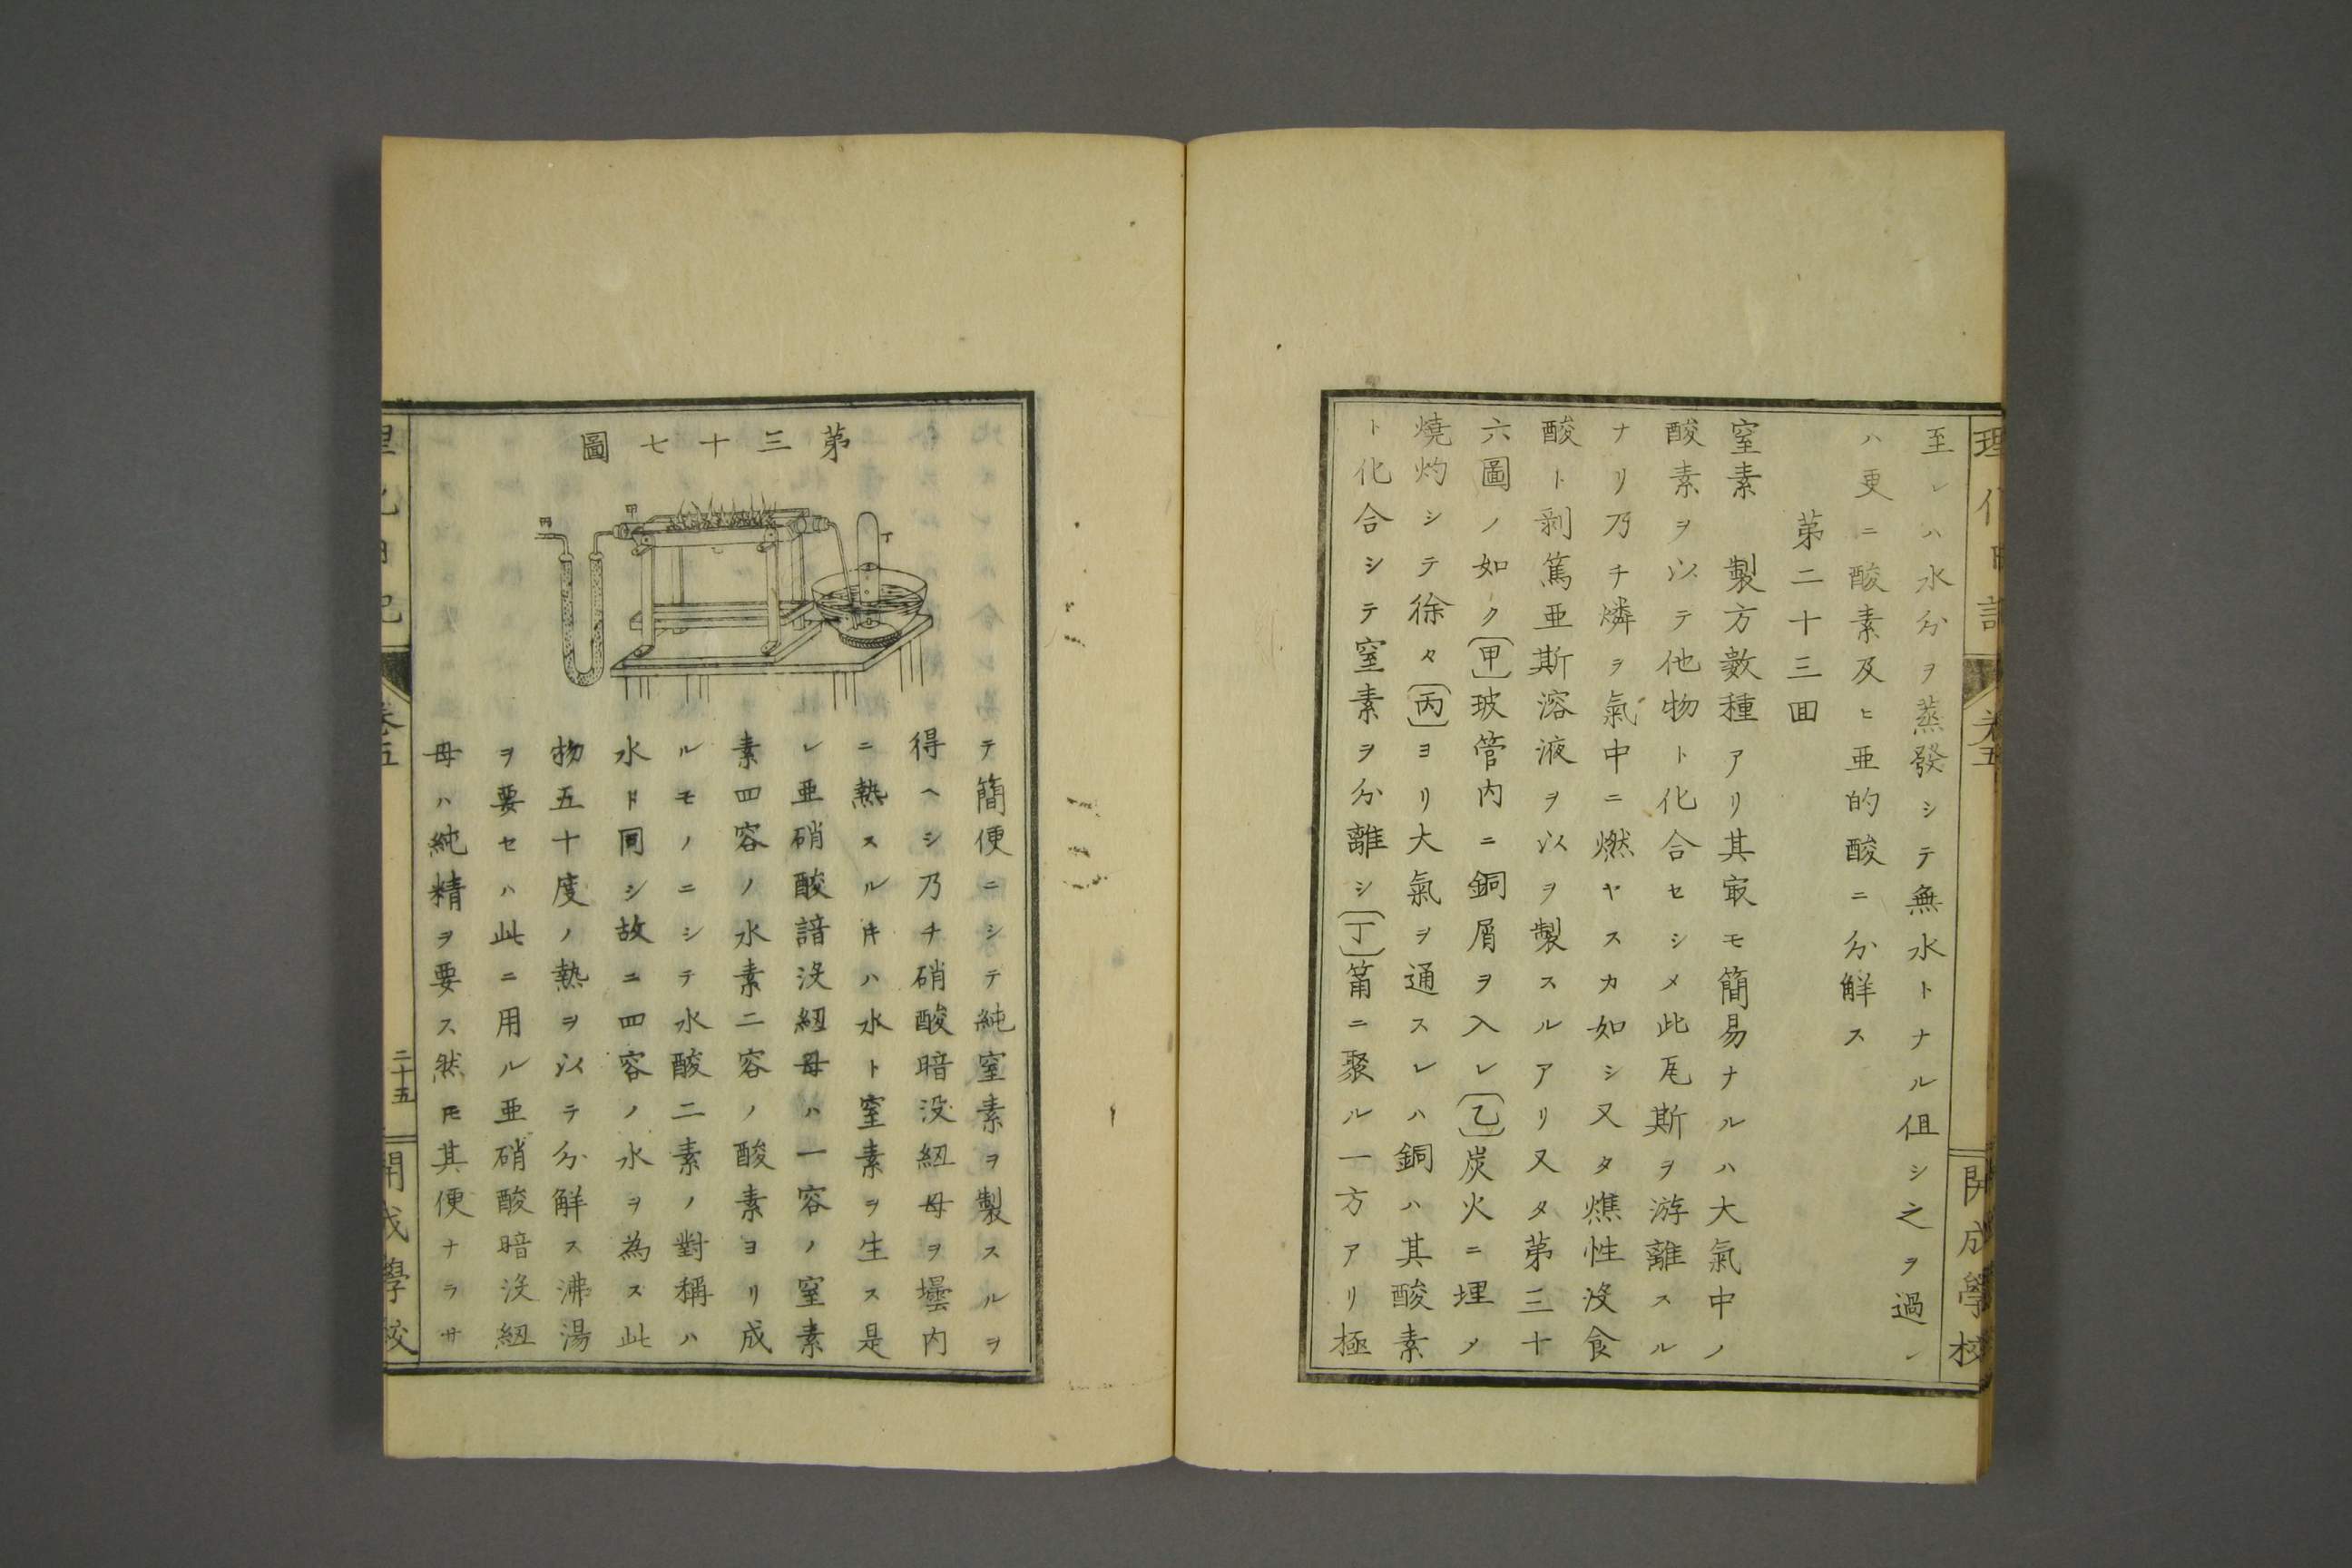 至レハ水分ヲ蒸發シテ無水トナル但シ之ヲ過レ
ハ更ニ酸素及ヒ亜的酸ニ分解ス
第二十三回
窒素 製方數種アリ其㝡モ簡易ナルハ大氣中ノ
酸素ヲ以テ他物ト化合セシメ此瓦斯ヲ游離スル
ナリ乃チ燐ヲ氣中ニ燃ヤスカ如シ又タ燋性没食
酸ト剥篤亜斯溶液ヲ以ヲ製スルアリ又タ第三十
六圖ノ如ク〔甲〕玻管内ニ銅屑ヲ入レ〔乙〕炭火ニ埋メ
燒灼シテ徐々〔丙〕ヨリ大氣ヲ通スレハ銅ハ其酸素
ト化合シテ窒素ヲ分離シ〔丁〕筩ニ聚ル一方アリ極
理化日記
卷五
開成學校
第三十七圖
丙
甲
丁
テ簡便ニシテ純窒素ヲ製スルヲ
得ヘシ乃チ硝酸暗没紐母ヲ壜内
ニ熱スルキハ水ト窒素ヲ生ス是
レ亜硝酸諳没紐母ハ一容ノ窒素
素四容ノ水素二容ノ酸素ヨリ成
ルモノニシテ水酸二素ノ對稱ハ
水ト同シ故ニ四容ノ水ヲ為ス此
物五十度ノ熱ヲ以テ分解ス沸湯
ヲ要セハ此ニ用ル亜硝酸暗没紐
母ハ純精ヲ要ス然𪜈其便ナラサ
卷五
二十五
開成學校